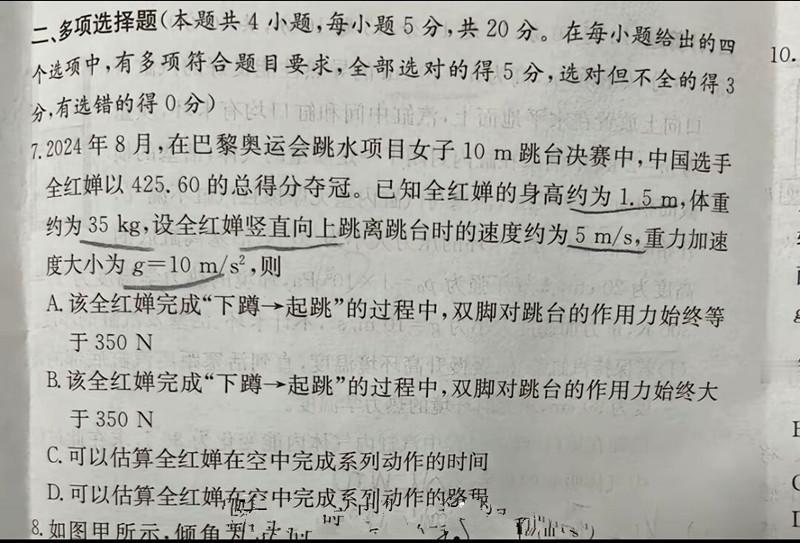 二、多项选择题(本题共4小题,每小题5分,共20分。在每小题给出的四
个选项中,有多项符合题目要求,全部选对的得5分,选对但不全的得3
分,有选错的得0分)
7.2024年8月,在巴黎奥运会跳水项目女子10 m跳台决赛中,中国选手
全红婵以425.60的总得分夺冠。已知全红婵的身高约为1.5 m,体重
约为35 kg,设全红婵竖直向上跳离跳台时的速度约为5 m/s,重力加速
度大小为g=10 m/s²,则
A.该全红婵完成“下蹲→起跳”的过程中,双脚对跳台的作用力始终等
于350 N
B.该全红婵完成“下蹲→起跳”的过程中,双脚对跳台的作用力始终大
于350 N
C.可以估算全红婵在空中完成系列动作的时间
D.可以估算全红婵在空中完成系列动作的路程
8.如图甲所示,倾角为
10.